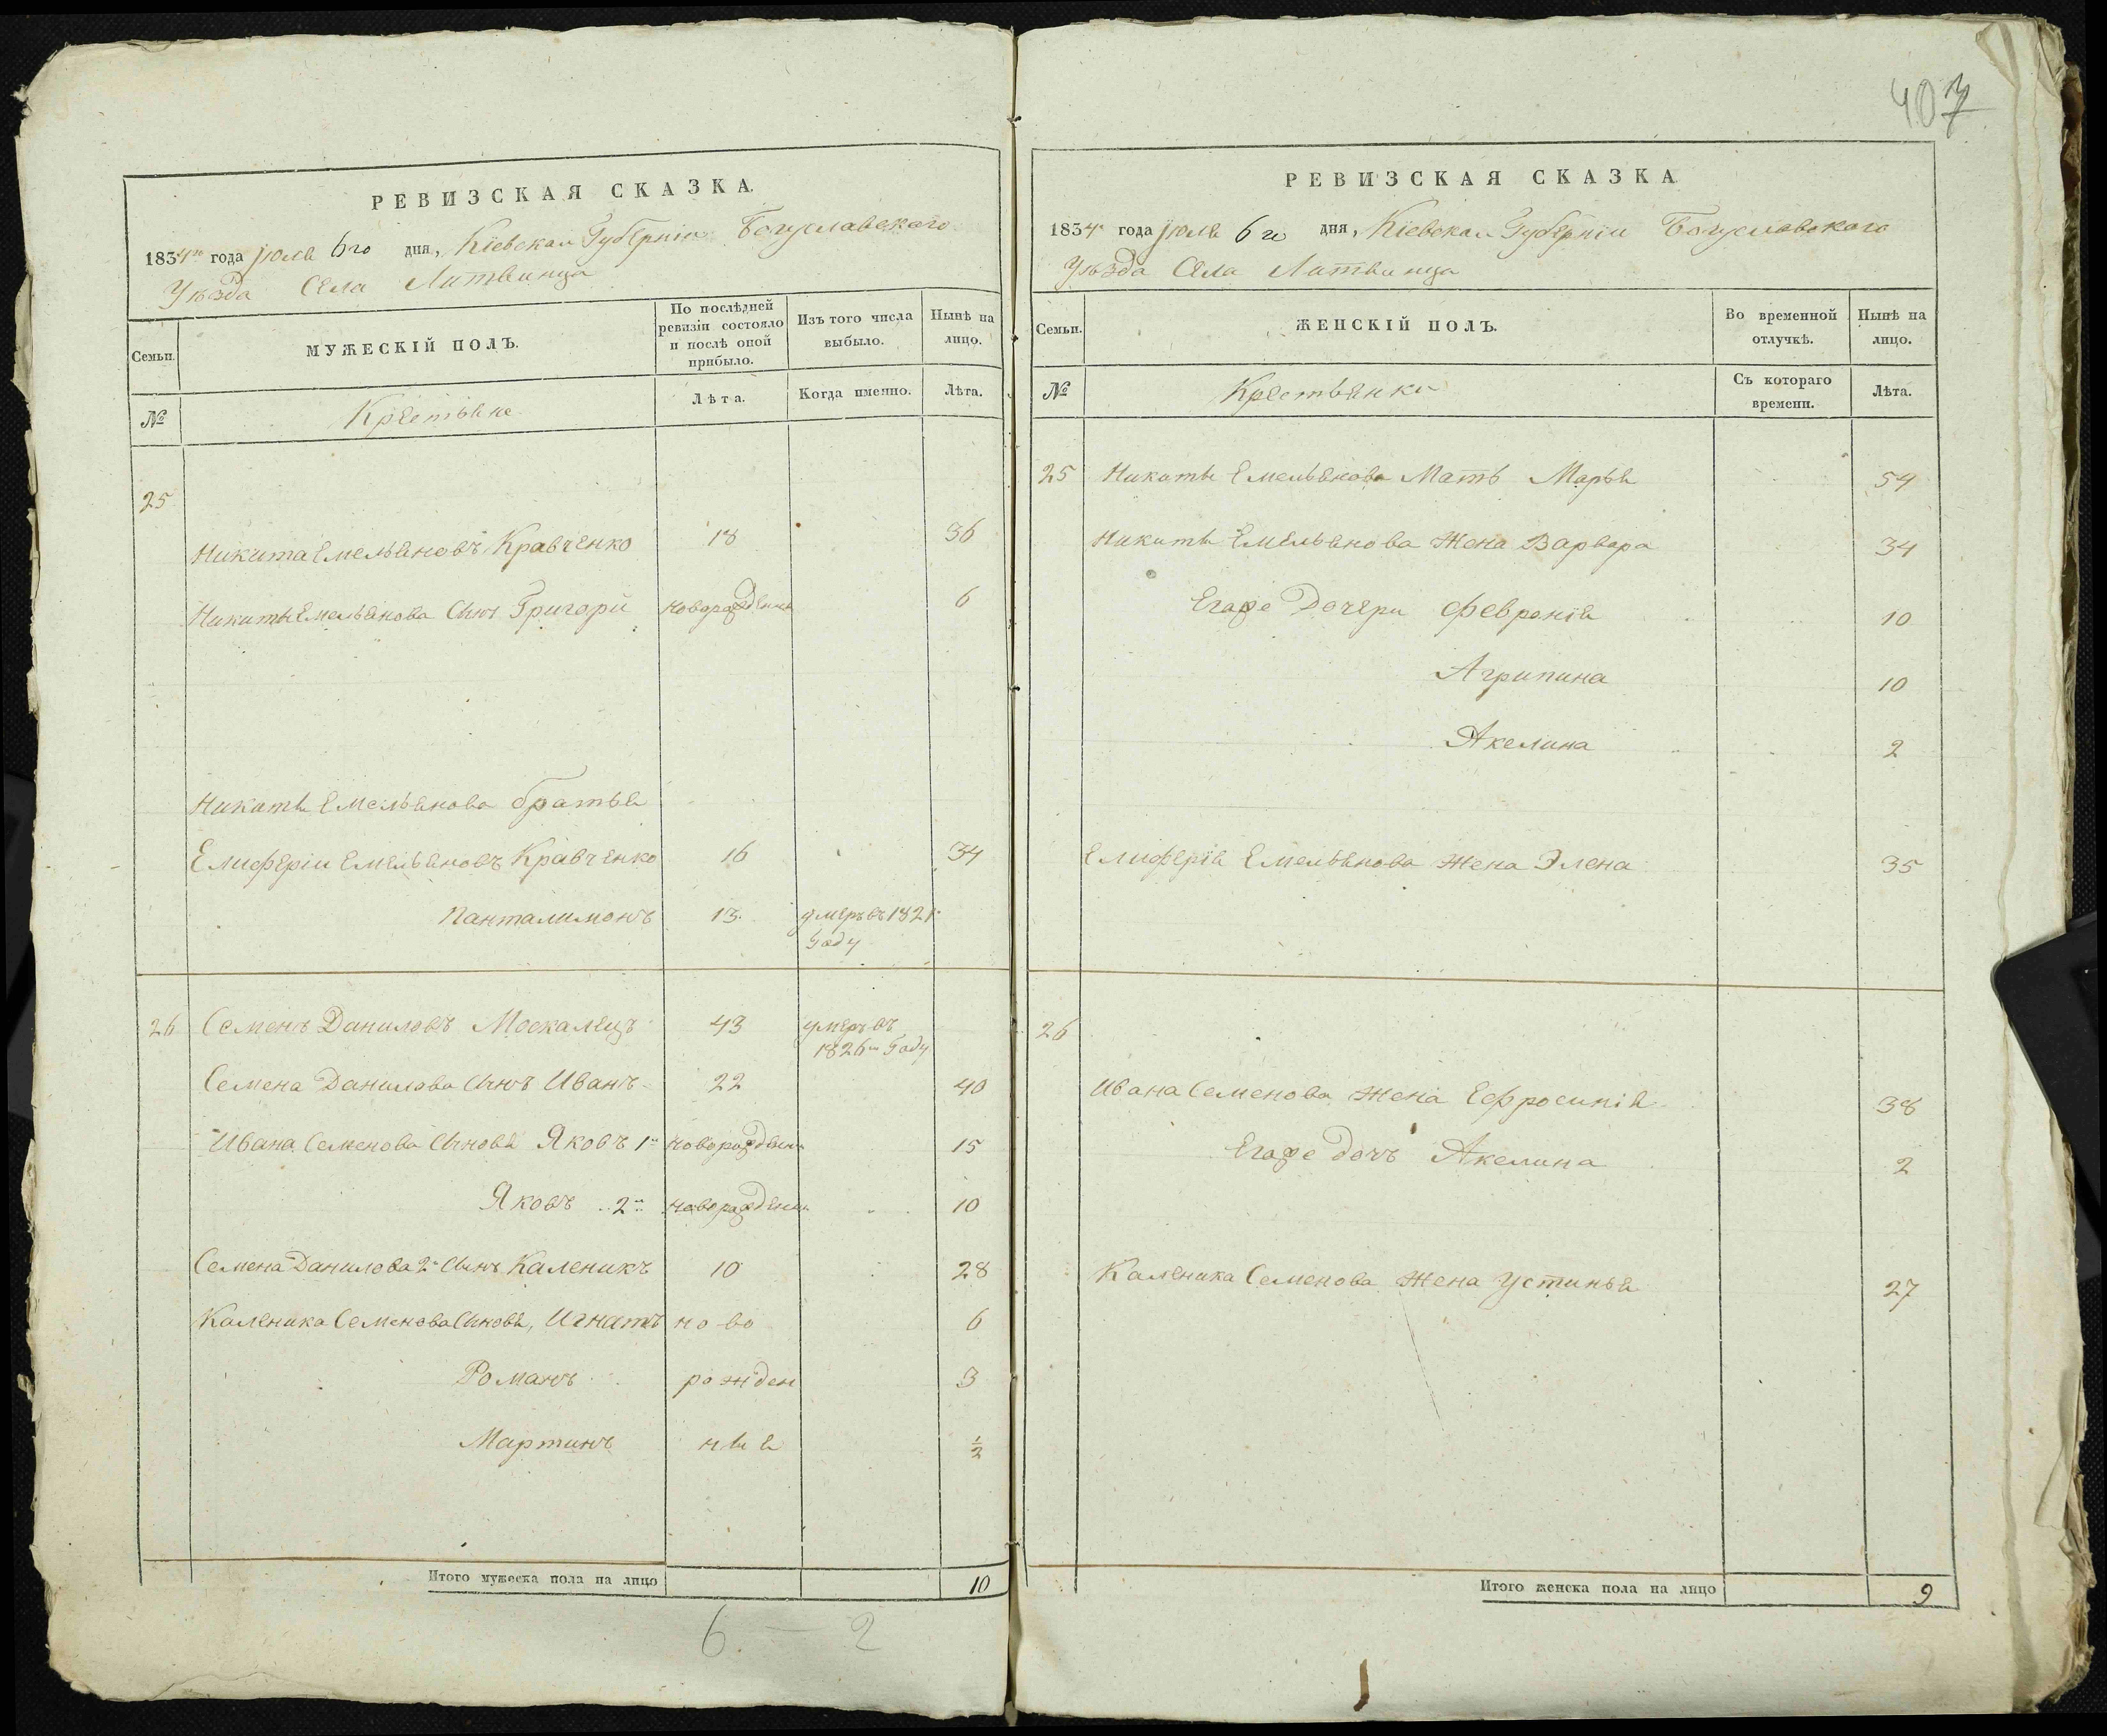 407
РЕВИЗСКАЯ СКАЗКА.
1834го года Июля 6го дня, Кіевская Губернія Богуславского
Уѣзда Села Литвинца
Семьи.
МУЖЕСКІЙ ПОЛЪ.
По послѣдней ревизіи состояло и послѣ оной прибыло.
Изъ того числа выбыло.
Нынѣ на лицо.
№
Крестьяне
Лѣта.
Когда именно.
Лѣта.
25
Никита Емельяновъ Кравченко 18 36
Никиты Емельянова Сынъ Григорій новорожденъ 6
Никиты Емельянова братья
Елиферіи Емельяновъ Кравченко 16 34
Панталимонъ 13 умеръ въ 1821м
Году
26 Семенъ Даниловъ Москалецъ 43 умеръ въ
1826м Году
Семена Данилова Сынъ Иванъ 22 40
Ивана Семенова Сыновя Яковъ 1й новорожденъ 15
Яковъ 2й новорожденъ 10
Семена Данилова 2й Сынъ Каленикъ 10 28
Каленика Семенова Сыновя, Игнатъ но во 6
Романъ рожден 3
Мартинъ ныя 1/2
Итого мужеска пола на лицо 10
6 - 2
РЕВИЗСКАЯ СКАЗКА
1834го года Июля 6го дня, Кіевская Губерніи Богуславского
Уѣзда Села Литвинца
Семьи.
ЖЕНСКІЙ ПОЛЪ.
Во временной отлучкѣ.
Нынѣ на лицо.
№
Крестьянки
Съ котораго времени.
Лѣта.
25 Никиты Емельянова Мать Марья 54
Никиты Емельянова Жена Варвара 34
Егоже Дочери Февронія 10
Агрипина 10
Акелина 2
Елиферія Емельянова Жена Элена 35
26
Ивана Семенова Жена Ефросинія 38
Егоже дочъ Акелина 2
Каленика Семенова Жена Устинья 27
Итого женска пола на лицо 9